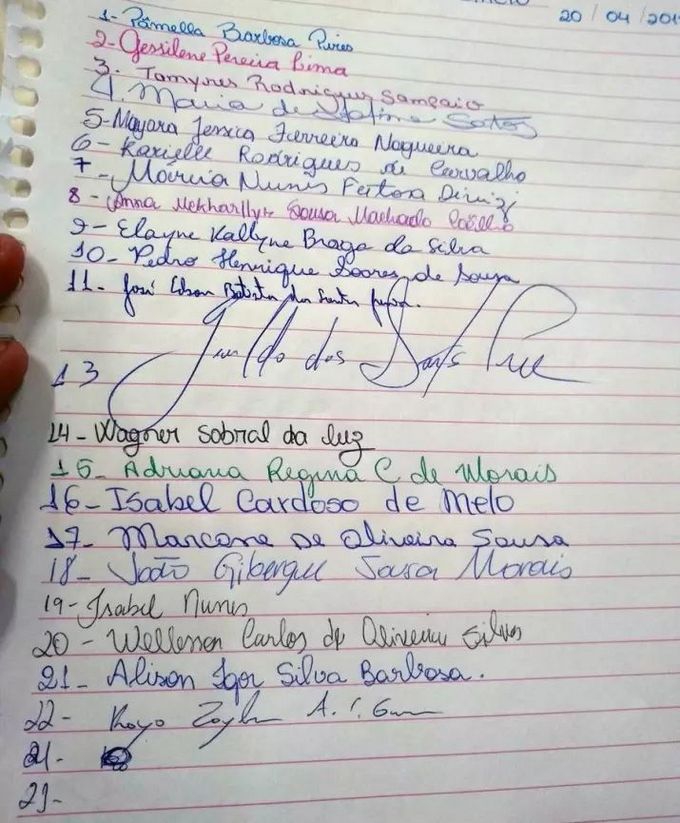 20/04/201
1- Pâmella Barbosa Pires
2- Gessilene Pereira Lima
3- Tamyres Rodrigues Sampaio
4. Maria de Fátima Santos
5- Mayara Jessica Ferreira Nogueira
6- Karielle Rodrigues de Carvalho
7- Márcia Nunes Feitosa Diniz
8- Anna Sousa Machado Coêlho
9- Elayne Kallyne Braga da Silva
10- Pedro Henrique Soares de Sousa
11- José Edson Batista dos Santos
dos Santos
13
14- Wagner Sobral da Luz
15- Adriana Regina C de Morais
16- Isabel Cardoso de Melo
17- Marcone De Oliveira Sousa
18- João Gibergue Sousa Morais
19- Isabel Nunes
20- Carlos de Oliveira Silva
21- Alison Igor Silva Barbosa.
22-
21-
23-